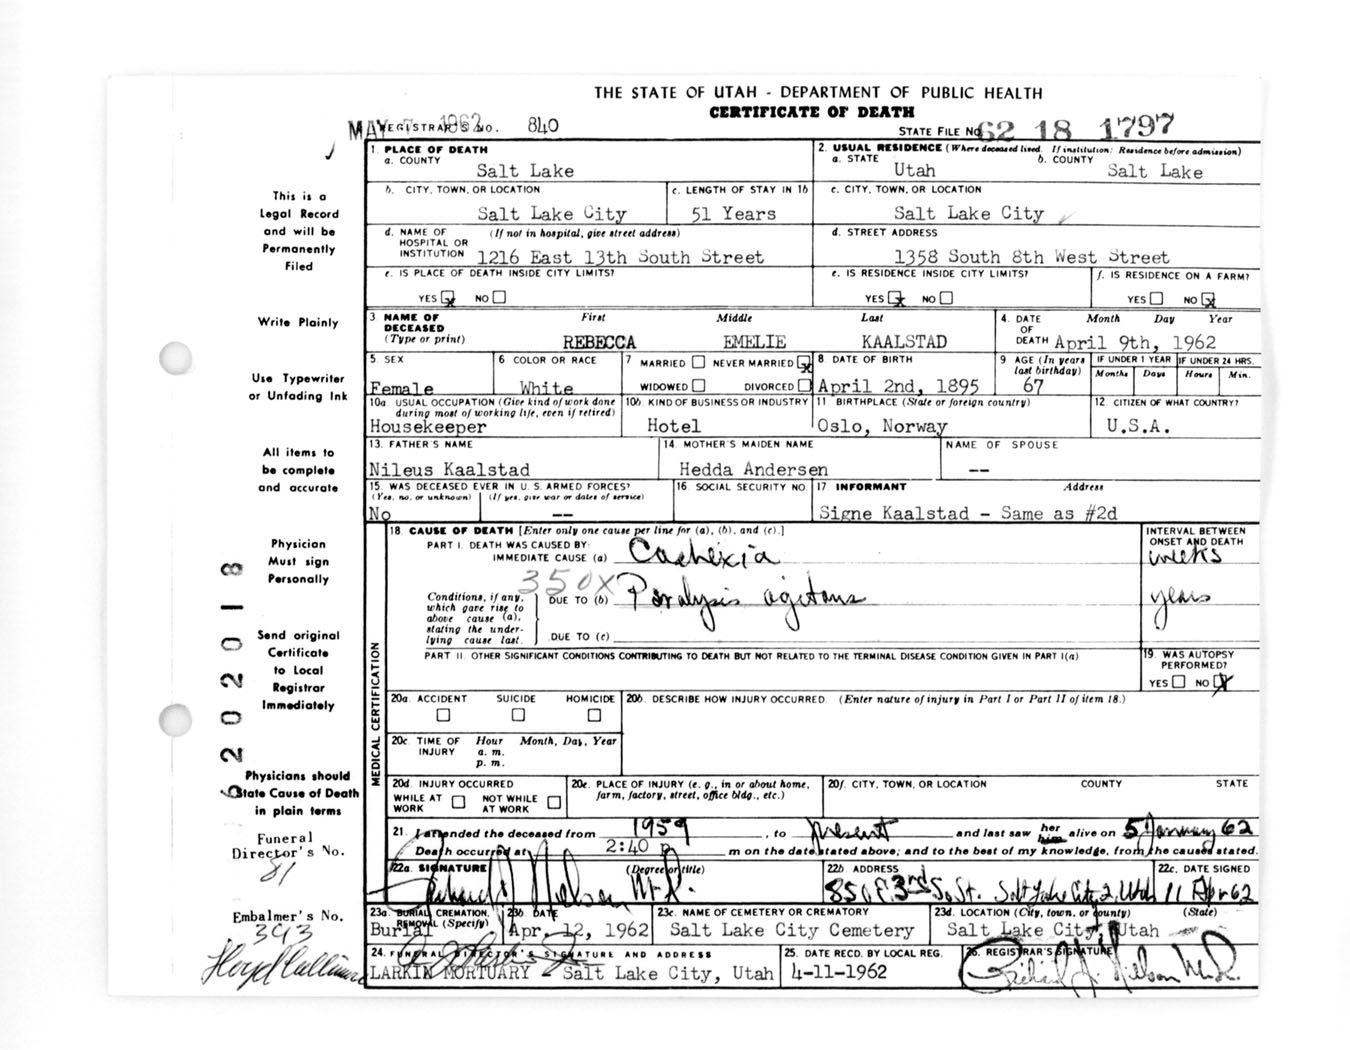 THE STATE OF UTAH - DEPARTMENT OF PUBLIC HEALTH
CERTIFICATE OF DEATH
MAY 7 1962 REGISTRAR'S NO. 840
STATE FILE NO. 62 18 1797
This is a
Legal Record
and will be
Permanently
Filed
Write Plainly
Use Typewriter
or Unfading Ink
All items to
be complete
and accurate
Physician
Must sign
Personally
Send original
Certificate
to Local
Registrar
Immediately
Physicians should
State Cause of Death
in plain terms
Funeral
Director's No.
81
Embalmer's No.
393
202018
1. PLACE OF DEATH
a. COUNTY
Salt Lake
2. USUAL RESIDENCE (Where deceased lived. If institution: Residence before admission)
a. STATE
Utah
b. COUNTY
Salt Lake
b. CITY, TOWN, OR LOCATION
Salt Lake City
c. LENGTH OF STAY IN 1b
51 Years
c. CITY, TOWN, OR LOCATION
Salt Lake City
d. NAME OF HOSPITAL OR INSTITUTION (If not in hospital, give street address)
1216 East 13th South Street
d. STREET ADDRESS
1358 South 8th West Street
e. IS PLACE OF DEATH INSIDE CITY LIMITS?
YES x NO
e. IS RESIDENCE INSIDE CITY LIMITS?
YES x NO
f. IS RESIDENCE ON A FARM?
YES NO x
3 NAME OF DECEASED (Type or print)
First Middle Last
REBECCA EMELIE KAALSTAD
4. DATE OF DEATH Month Day Year
April 9th, 1962
5 SEX
Female
6 COLOR OR RACE
White
7 MARRIED NEVER MARRIED x
WIDOWED DIVORCED
8 DATE OF BIRTH
April 2nd, 1895
9 AGE (In years last birthday)
67
IF UNDER 1 YEAR
Months Days
IF UNDER 24 HRS.
Hours Min.
10a. USUAL OCCUPATION (Give kind of work done during most of working life, even if retired)
Housekeeper
10b KIND OF BUSINESS OR INDUSTRY
Hotel
11 BIRTHPLACE (State or foreign country)
Oslo, Norway
12. CITIZEN OF WHAT COUNTRY?
U.S.A.
13. FATHER'S NAME
Nileus Kaalstad
14 MOTHER'S MAIDEN NAME
Hedda Andersen
NAME OF SPOUSE
--
15. WAS DECEASED EVER IN U. S. ARMED FORCES?
(Yes, no, or unknown) (If yes, give war or dates of service)
No --
16 SOCIAL SECURITY NO.
17 INFORMANT Address
Signe Kaalstad - Same as #2d
MEDICAL CERTIFICATION
18. CAUSE OF DEATH [Enter only one cause per line for (a), (b), and (c).]
INTERVAL BETWEEN ONSET AND DEATH
PART I. DEATH WAS CAUSED BY:
IMMEDIATE CAUSE (a) Cachexia weeks
350X
Conditions, if any, which gave rise to above cause (a), stating the underlying cause last.
DUE TO (b) Paralysis agitans years
DUE TO (c)
PART II. OTHER SIGNIFICANT CONDITIONS CONTRIBUTING TO DEATH BUT NOT RELATED TO THE TERMINAL DISEASE CONDITION GIVEN IN PART I(a)
19. WAS AUTOPSY PERFORMED?
YES NO x
20a. ACCIDENT SUICIDE HOMICIDE
20b. DESCRIBE HOW INJURY OCCURRED. (Enter nature of injury in Part I or Part II of item 18.)
20c. TIME OF INJURY Hour Month, Day, Year
a. m.
p. m.
20d. INJURY OCCURRED
WHILE AT WORK NOT WHILE AT WORK
20e. PLACE OF INJURY (e. g., in or about home, farm, factory, street, office bldg., etc.)
20f. CITY, TOWN, OR LOCATION COUNTY STATE
21. I attended the deceased from 1959, to Present and last saw her him alive on 5 January 62
Death occurred at 2:40 p m on the date stated above; and to the best of my knowledge, from the causes stated.
22a. SIGNATURE (Degree or title)
Richard J Nielsen M.D.
22b. ADDRESS
850 E. 3rd So. St. Salt Lake City 2, Utah
22c. DATE SIGNED
11 Apr 62
23a. BURIAL, CREMATION, REMOVAL (Specify)
Burial
23b DATE
Apr. 12, 1962
23c. NAME OF CEMETERY OR CREMATORY
Salt Lake City Cemetery
23d. LOCATION (City, town, or county) (State)
Salt Lake City, Utah
24. FUNERAL DIRECTOR'S SIGNATURE AND ADDRESS
LARKIN MORTUARY - Salt Lake City, Utah
25. DATE RECD. BY LOCAL REG.
4-11-1962
26. REGISTRAR'S SIGNATURE